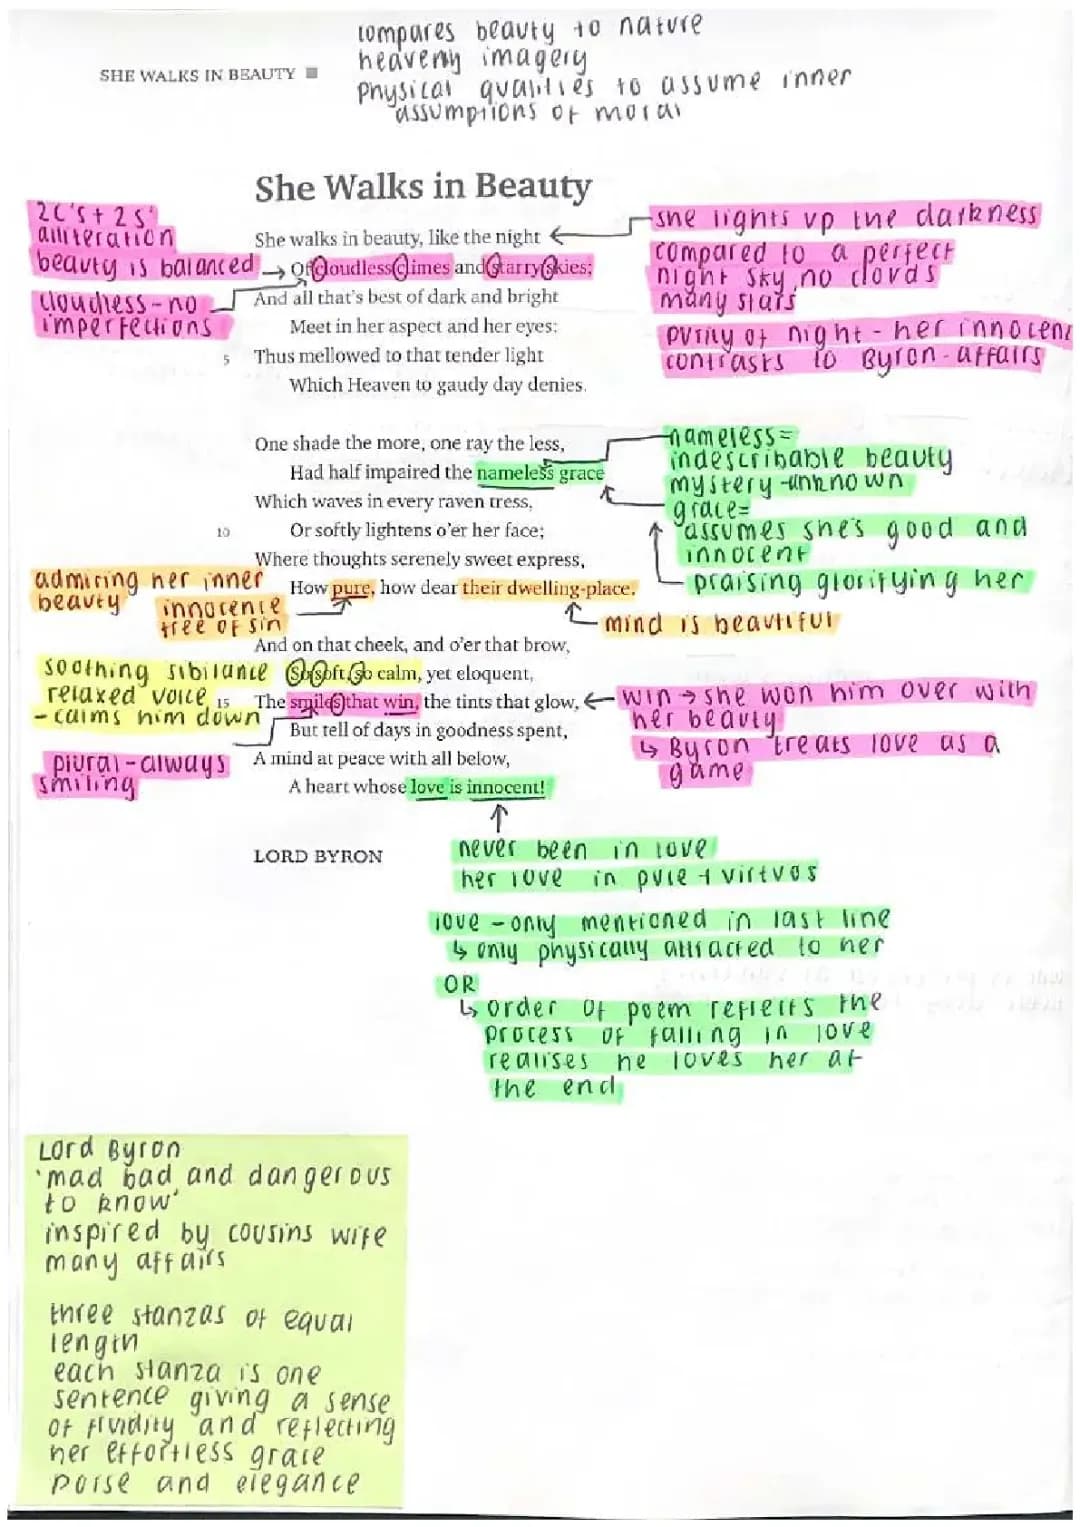 compares beauty to nature
heavenly imagery
physical qualities to assume inner
assumptions of moral
SHE WALKS IN BEAUTY
She Walks in Beauty
2C's + 2 S'
alliteration
beauty is balanced
cloudless - no
imperfections
She walks in beauty, like the night
Of cloudless climes and starry skies;
And all that's best of dark and bright
Meet in her aspect and her eyes:
5 Thus mellowed to that tender light
Which Heaven to gaudy day denies.
she lights up the darkness
compared to a perfect
night sky, no clouds
many stars
purity of night - her innocenc
contrasts to Byron - affairs
One shade the more, one ray the less,
Had half impaired the nameless grace
Which waves in every raven tress,
10 Or softly lightens o'er her face;
Where thoughts serenely sweet express,
How pure, how dear their dwelling-place.
nameless =
indescribable beauty
mystery - unknown
grace =
assumes she's good and
innocent
praising glorifying her
admiring her inner
beauty
innocence
free of sin
mind is beautiful
And on that cheek, and o'er that brow,
So soft, so calm, yet eloquent,
15 The smiles that win, the tints that glow,
But tell of days in goodness spent,
A mind at peace with all below,
A heart whose love is innocent!
soothing sibilance
relaxed voice
- calms him down
plural - always
smiling
win → she won him over with
her beauty
↳ Byron treats love as a
game
LORD BYRON
never been in love
her love in pure + virtuos
love - only mentioned in last line
↳ only physically attracted to her
OR
↳ order of poem reflects the
process of falling in love
realises he loves her at
the end
Lord Byron
'mad bad and dangerous
to know'
inspired by cousins wife
many affairs
three stanzas of equal
length
each stanza is one
sentence giving a sense
of fluidity and reflecting
her effortless grace
poise and elegance